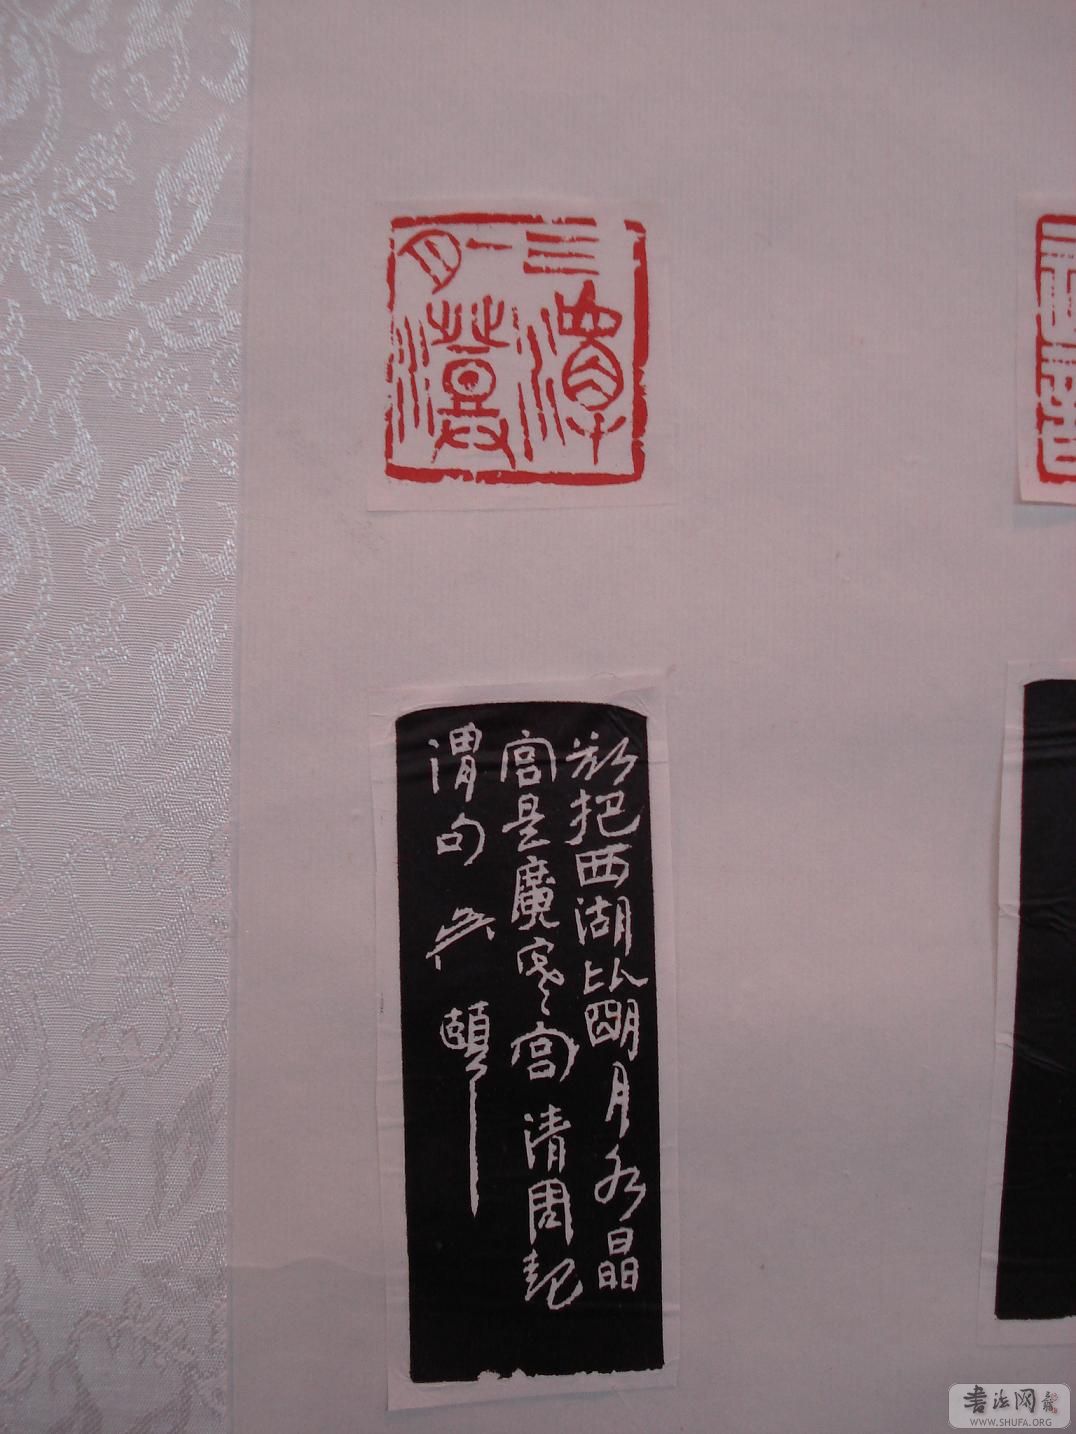 三潭
一月
把西湖比明月水晶
宫是廣寒宫 清周起
渭句 頤
書法网
WWW.SHUFA.ORG